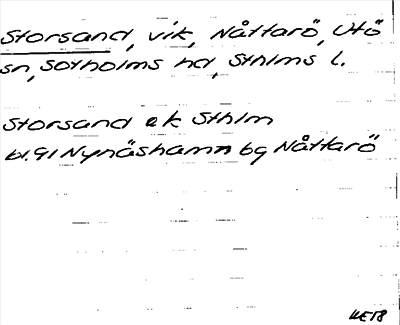 Storsand, vik, Nåttarö, Utö
sn, Sotholms hd, Sthlms l.
Storsand ek Sthlm
bl.91 Nynäshamn bg Nåttarö